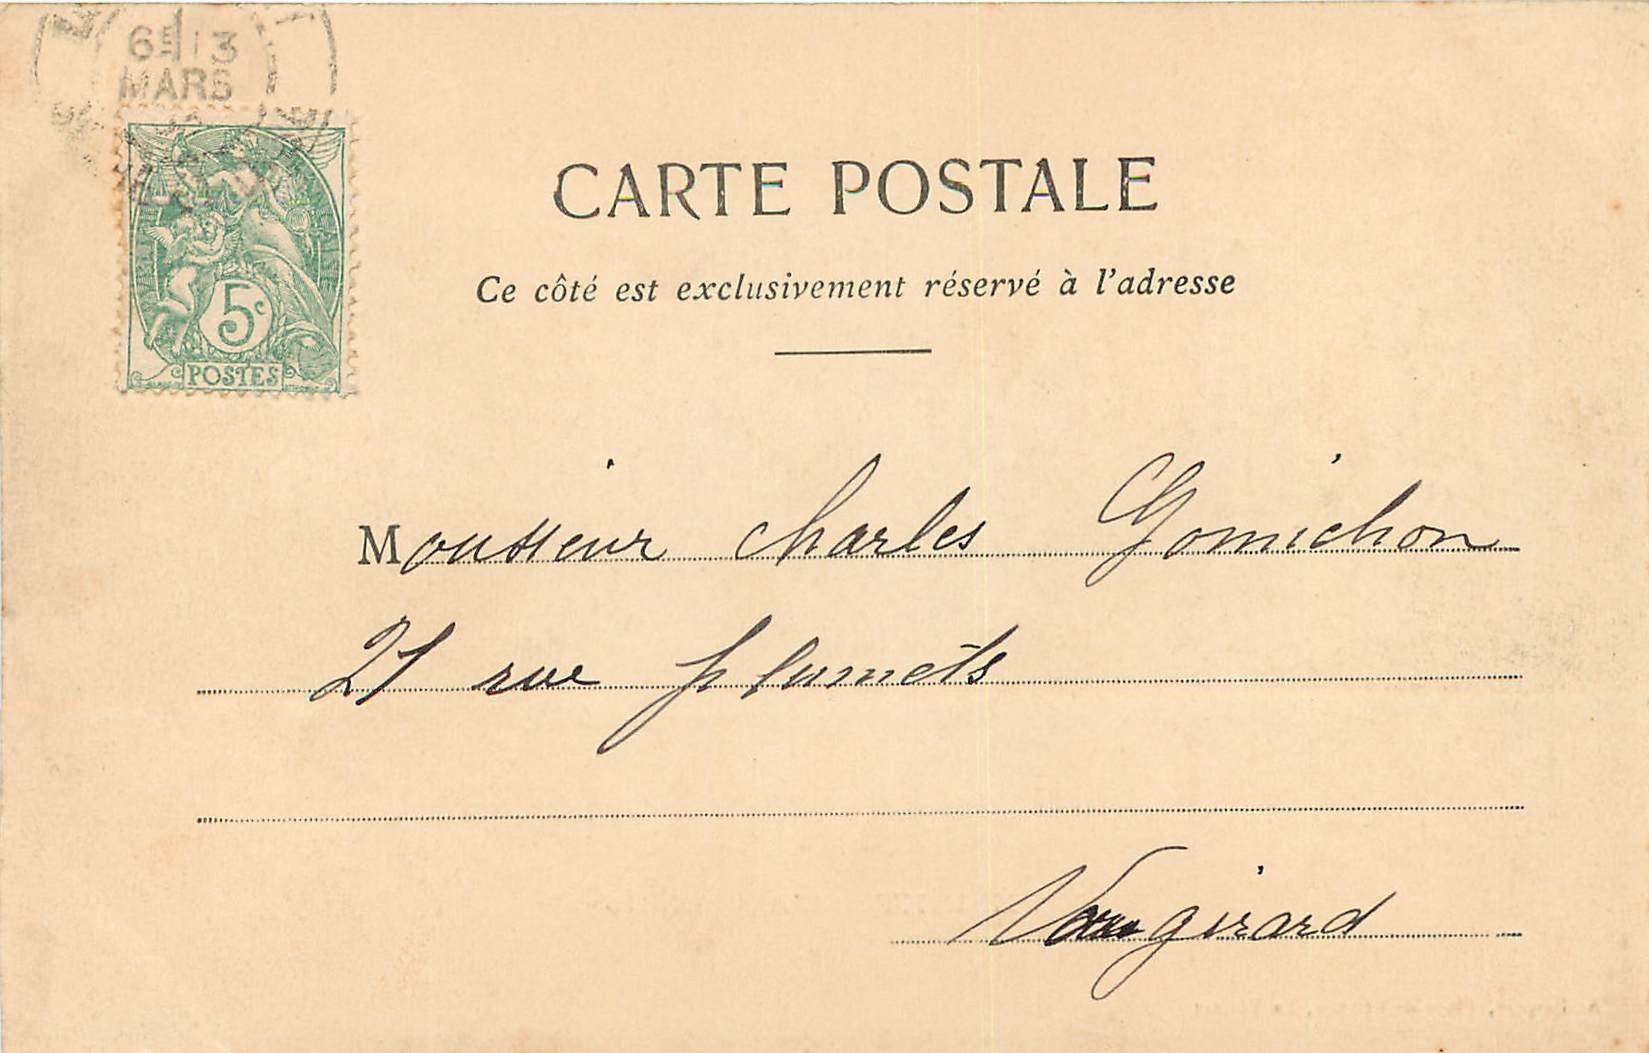 6E 13
MARS
RÉPUBLIQUE FRANÇAISE
5c
POSTES
CARTE POSTALE
Ce côté est exclusivement réservé à l'adresse
Monsieur Charles Gomichon
21 rue plumets
Vaugirard